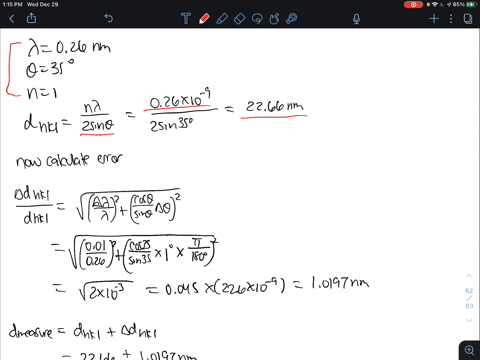 1:15 PM Wed Dec 29
85%
λ = 0.26 nm
θ = 35°
n = 1
d_hkl = nλ / 2sinθ = 0.26×10^-9 / 2sin35° = 22.66 nm
now calculate error
Δd_hkl / d_hkl = √((Δλ/λ)² + (cosθ/sinθ Δθ)²)
= √((0.01/0.26)² + (cos35/sin35 × 1° × π/180°)²)
= √(2×10^-3) = 0.045 × (22.6×10^-9) = 1.0197 nm
62
/
63
d measure = d_hkl + Δd_hkl